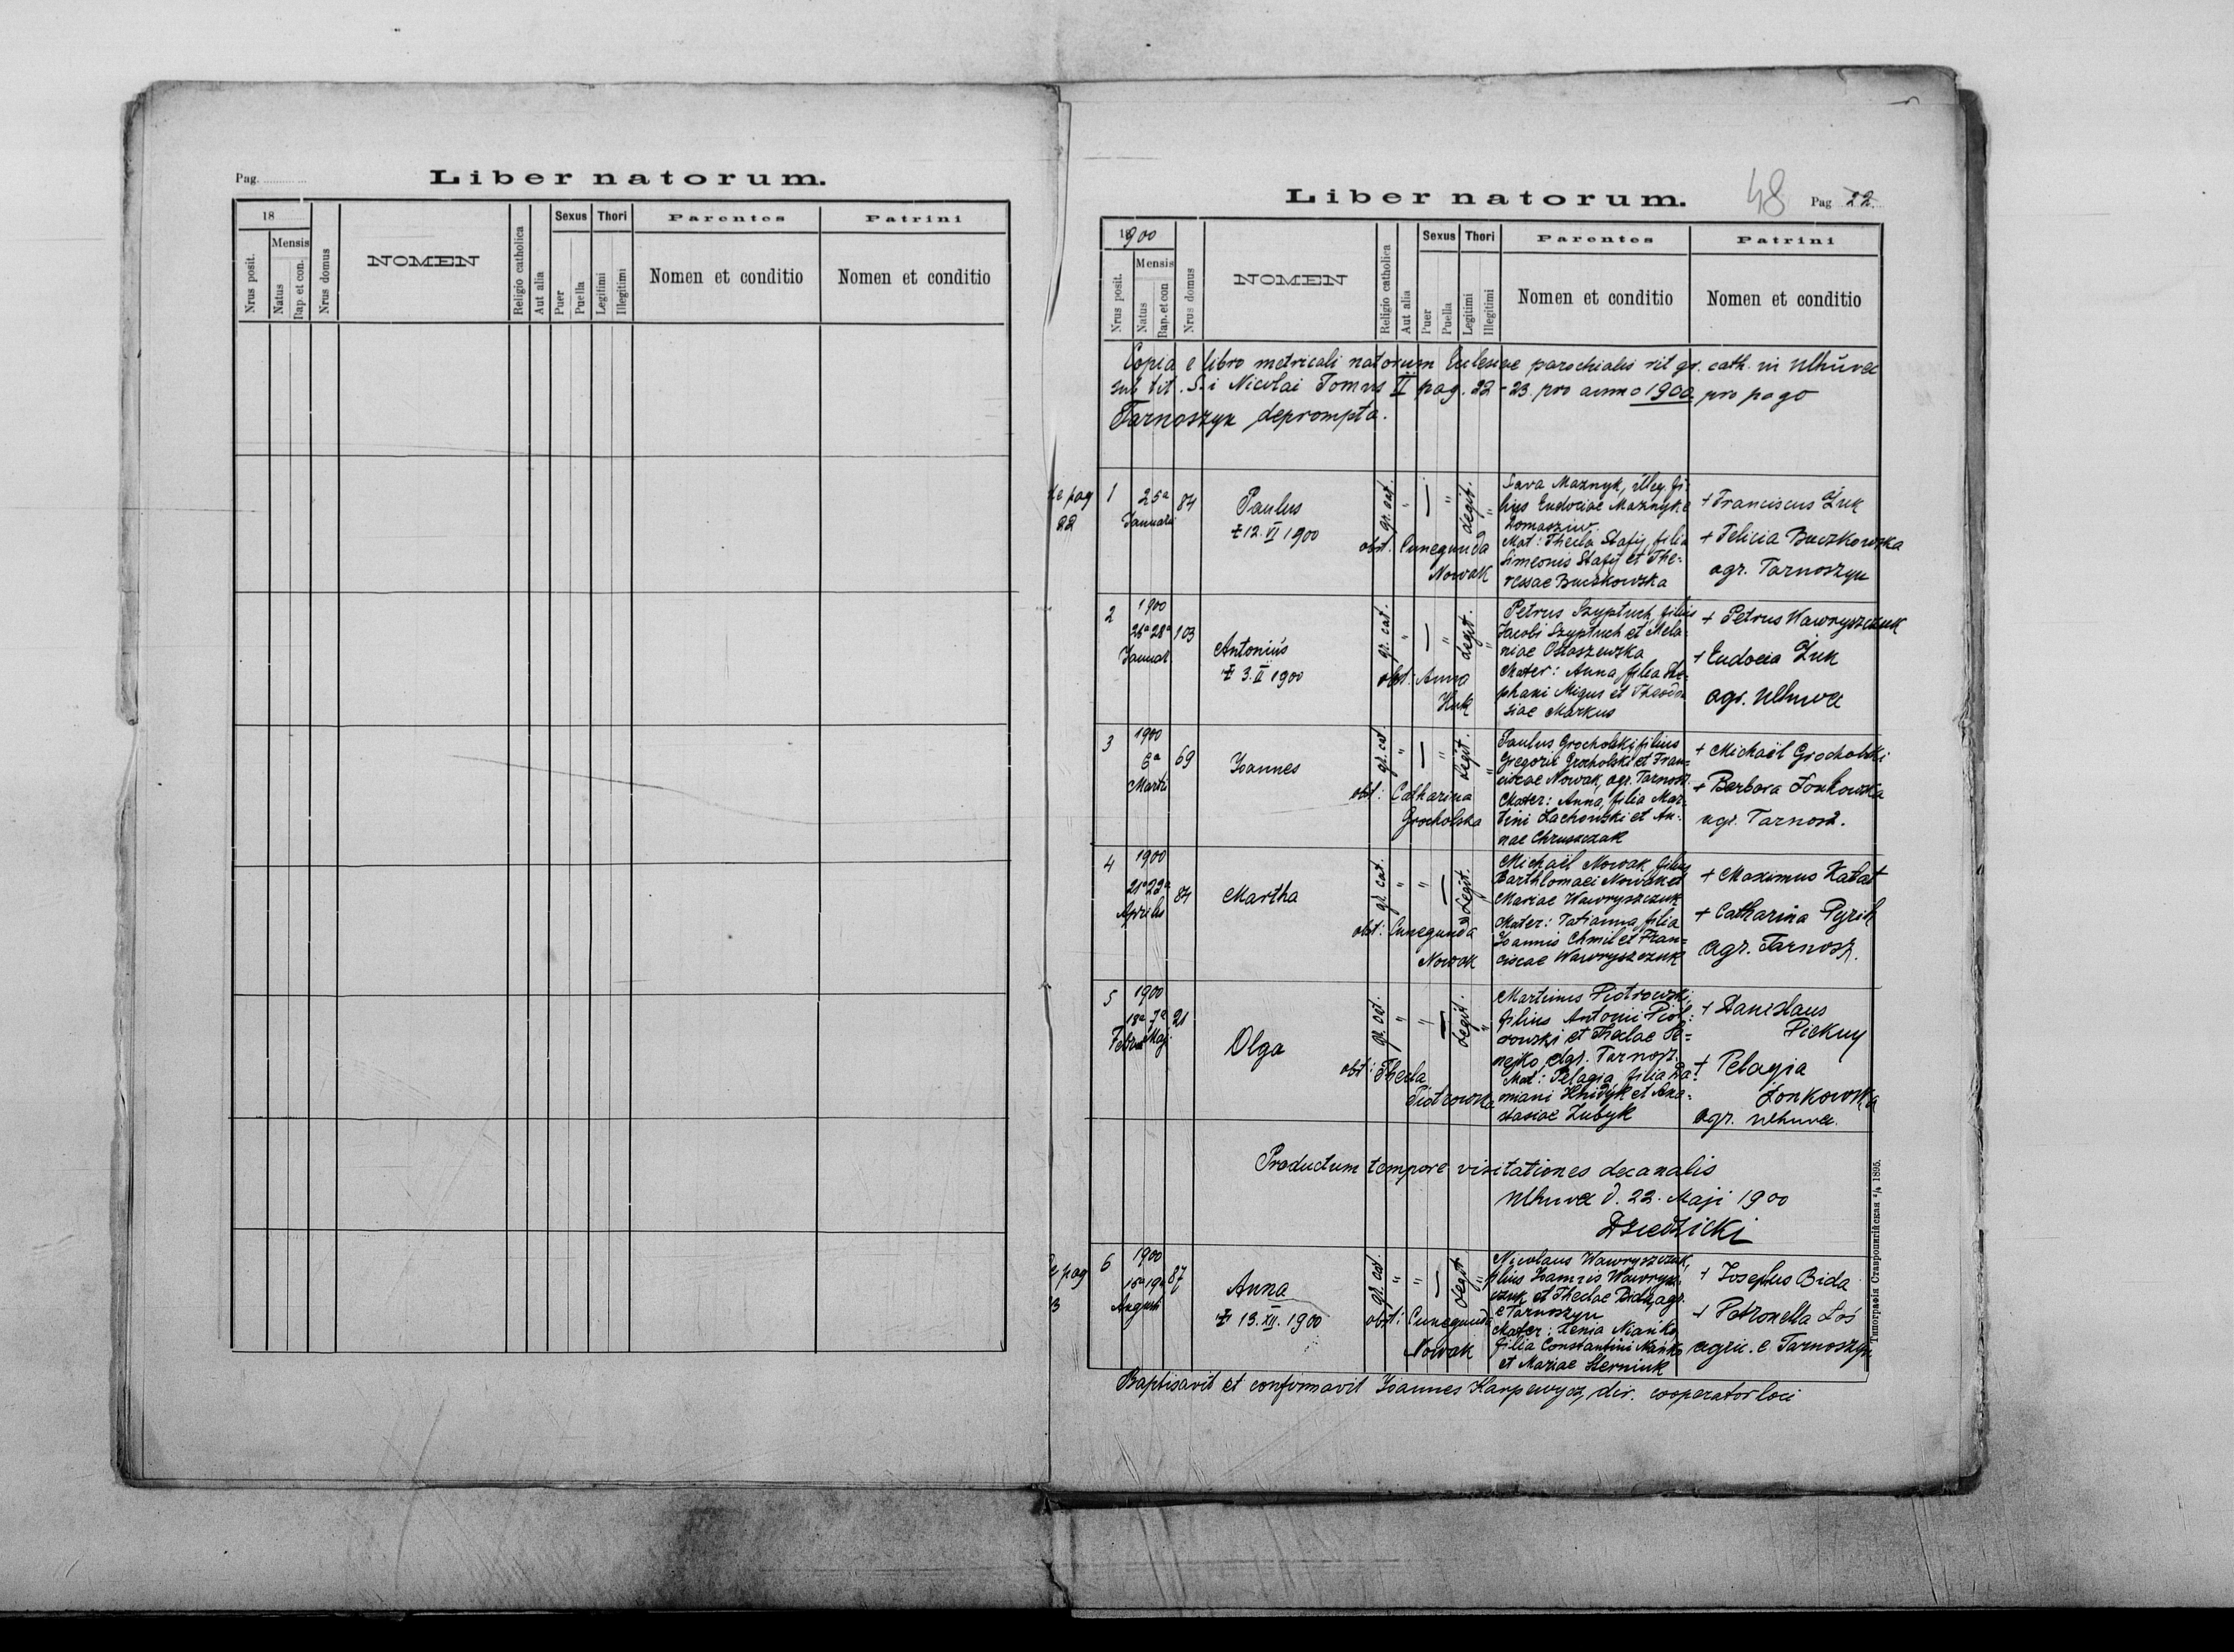 Pag.
Liber natorum.
18
Nrus posit.
Mensis
Natus
Bap. et con.
Nrus domus
NOMEN
Religio catholica
Aut alia
Sexus
Puer
Puella
Thori
Legitimi
Illegitimi
Parentes
Nomen et conditio
Patrini
Nomen et conditio
Liber natorum.
48
Pag 22
1900
Nrus posit.
Mensis
Natus
Bap. et con
Nrus domus
NOMEN
Religio catholica
Aut alia
Sexus
Puer
Puella
Thori
Legitimi
Illegitimi
Parentes
Nomen et conditio
Patrini
Nomen et conditio
Copia e libro metricali natorum Ecclesiae parochialis rit gr. cath. in Ulhuvek
sub tit. S-i Nicolai Tomus II pag. 22-23. pro anno 1900 pro pago
Tarnoszyn deprompta.
pag
22
1
25a
Januarii
84
Paulus
+ 12. VI 1900
gr. cat. " — " Legit. "
obst. Cunegunda
Nowak
Sava Maznyk, illeg. fi-
lius Eudociae Maznyk e
Mat: Thecla Stafij, filia
Simeonis Stafij et The-
ressae Buczkowska
+ Franciscus Żuk
+ Felicia Buczkowska
agr. Tarnoszyn
2
1900
26a 28a
Januar.
103
Antonius
+ 3. II 1900
gr. cat. " — " Legit. "
obst. Anna
Huk
Petrus Szyptuch, filius
Jacobi Szyptuch et Mela-
niae Ostaszewska
Mater: Anna, filia Ste-
phani Migus et Theodo-
siae Markus
+ Petrus Wawryszczuk
+ Eudocia Żuk
agr. Ulhuvek
3
1900
6a
Martii
69
Joannes
gr. cat. " — " Legit. "
obst: Catharina
Grocholska
Paulus Grocholski filius
Gregorii Grocholski et Fran-
ciscae Nowak, agr. Tarnosz.
Mater: Anna, filia Mar-
tini Lachowski et An-
nae Chruszczak
+ Michaël Grocholski
+ Barbara Łonkowska
agr. Tarnosz.
4
1900
21a 22a
Aprilis
84
Martha
gr. cat. " " — Legit. "
obst: Cunegunda
Nowak
Michaël Nowak, filius
Barthlomaei Nowak et
Mariae Wawryszczuk
Mater: Tatianna filia
Joannis Chmil et Fran=
ciscae Wawryszczuk
+ Maximus Kałat
+ Catharina Pyrih
agr. Tarnosz.
5
1900
18a 7a
Febru Maj.
21
Olga
gr. cat. " " — Legit. "
obst: Thecla
Piotrowska
Martinus Piotrowski,
filius Antonii Piot-
rowski et Theclae
agr. Tarnosz.
Mat: Pelagia filia Da-
miani Hnidyk et Ana-
stasiae Zubyk
+ Stanislaus
Piekuy
+ Pelagia
Łonkowska
agr. Ulhuvek
Productum tempore visitationes decanalis
Ulhuvek d. 22. Maji 1900
Dziedzicki
pag
6
1900
16a 19a
Augusti
87
Anna
+ 13. XII. 1900
gr. cat. " " — Legit. "
obst: Cunegunda
Nowak
Nicolaus Wawryszczuk,
filius Joannis Wawrysz-
czuk et Theclae Bida, agr.
e Tarnoszyn
Mater: Xenia Niańko
filia Constantini Niańko
et Mariae Sterniuk
+ Josephus Bida
+ Petronella Łoś
agric. e Tarnoszyn
Baptisavit et confirmavit Joannes Karpewycz, dir. cooperator loci
Типографія Ставропигійская 1895.